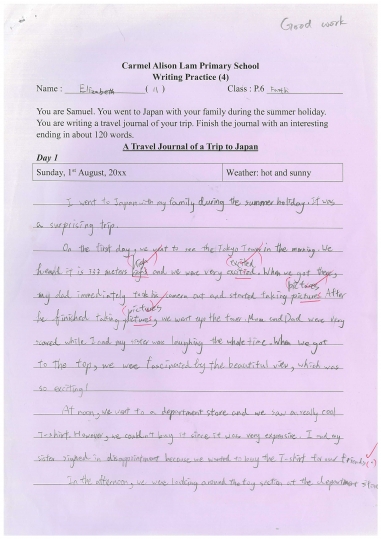 Good work
Carmel Alison Lam Primary School
Writing Practice (4)
Name : Elizabeth ( 11 ) Class : P.6 Faith
You are Samuel. You went to Japan with your family during the summer holiday.
You are writing a travel journal of your trip. Finish the journal with an interesting
ending in about 120 words.
A Travel Journal of a Trip to Japan
Day 1
Sunday, 1st August, 20xx Weather: hot and sunny
I went to Japan with my family during the summer holiday. It was
a surprising trip.
On the first day, we went to see the Tokyo Tower in the morning. We
heard it is 333 meters and we were very excited. When we got there,
pictures
my dad immediately took his camera out and started taking pictures. After
pictures
he finished taking pictures, we went up the tower. Mum and Dad were very
scared while I and my sister was laughing the whole time. When we got
to the top, we were fascinated by the beautiful view, which was
so exciting!
At noon, we went to a department store and we saw a really cool
T-shirt. However, we couldn't buy it since it was very expensive. I and my
sister sighed in disappointment because we wanted to buy the T-shirt for our friends.
In the afternoon, we were looking around the toy section at the department store